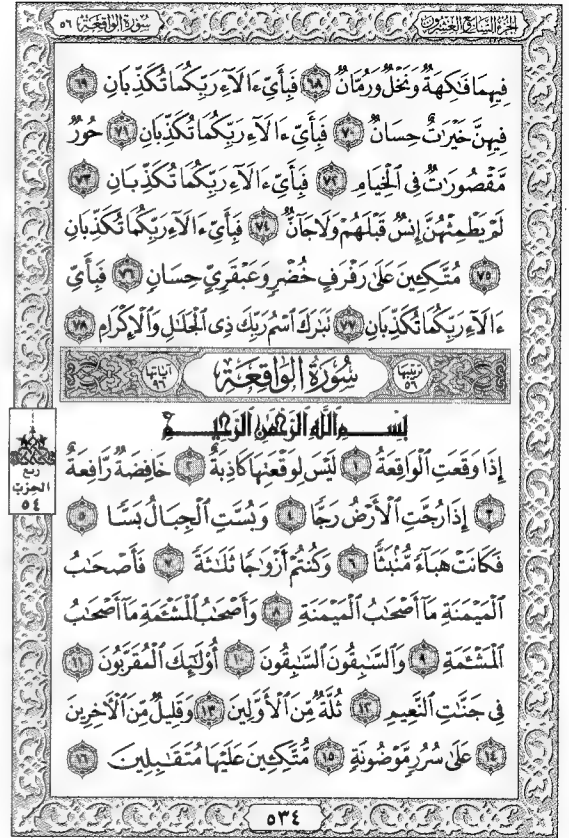 سورة الواقعة ٥٦
الجزء السابع والعشرون
فِيهِمَا فَٰكِهَةٌ وَنَخْلٌ وَرُمَّانٌ ٦٨ فَبِأَيِّ ءَالَآءِ رَبِّكُمَا تُكَذِّبَانِ ٦٩
فِيهِنَّ خَيْرَٰتٌ حِسَانٌ ٧٠ فَبِأَيِّ ءَالَآءِ رَبِّكُمَا تُكَذِّبَانِ ٧١ حُورٌ
مَّقْصُورَٰتٌ فِي ٱلْخِيَامِ ٧٢ فَبِأَيِّ ءَالَآءِ رَبِّكُمَا تُكَذِّبَانِ ٧٣
لَمْ يَطْمِثْهُنَّ إِنسٌ قَبْلَهُمْ وَلَا جَآنٌّ ٧٤ فَبِأَيِّ ءَالَآءِ رَبِّكُمَا تُكَذِّبَانِ
٧٥ مُتَّكِـِٔينَ عَلَىٰ رَفْرَفٍ خُضْرٍ وَعَبْقَرِيٍّ حِسَانٍ ٧٦ فَبِأَيِّ
ءَالَآءِ رَبِّكُمَا تُكَذِّبَانِ ٧٧ تَبَٰرَكَ ٱسْمُ رَبِّكَ ذِي ٱلْجَلَٰلِ وَٱلْإِكْرَامِ ٧٨
ترتيبها ٥٦ سُورَةُ الوَاقِعَةِ آياتها ٩٦
بِسْمِ ٱللَّهِ ٱلرَّحْمَٰنِ ٱلرَّحِيمِ
إِذَا وَقَعَتِ ٱلْوَاقِعَةُ ١ لَيْسَ لِوَقْعَتِهَا كَاذِبَةٌ ٢ خَافِضَةٌ رَّافِعَةٌ
٣ إِذَا رُجَّتِ ٱلْأَرْضُ رَجًّا ٤ وَبُسَّتِ ٱلْجِبَالُ بَسًّا ٥
فَكَانَتْ هَبَآءً مُّنۢبَثًّا ٦ وَكُنتُمْ أَزْوَٰجًا ثَلَٰثَةً ٧ فَأَصْحَٰبُ
ٱلْمَيْمَنَةِ مَآ أَصْحَٰبُ ٱلْمَيْمَنَةِ ٨ وَأَصْحَٰبُ ٱلْمَشْـَٔمَةِ مَآ أَصْحَٰبُ
ٱلْمَشْـَٔمَةِ ٩ وَٱلسَّٰبِقُونَ ٱلسَّٰبِقُونَ ١٠ أُو۟لَٰٓئِكَ ٱلْمُقَرَّبُونَ ١١
فِي جَنَّٰتِ ٱلنَّعِيمِ ١٢ ثُلَّةٌ مِّنَ ٱلْأَوَّلِينَ ١٣ وَقَلِيلٌ مِّنَ ٱلْءَاخِرِينَ
١٤ عَلَىٰ سُرُرٍ مَّوْضُونَةٍ ١٥ مُّتَّكِـِٔينَ عَلَيْهَا مُتَقَٰبِلِينَ ١٦
ربع
الحزب
٥٤
٥٣٤